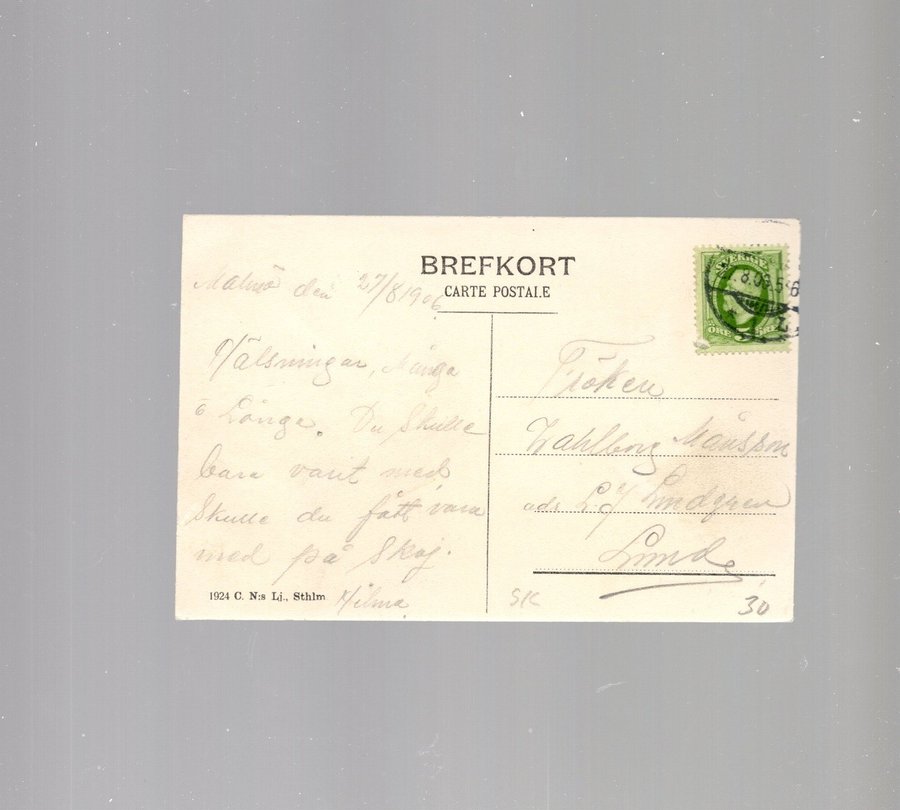 BREFKORT
CARTE POSTALE
Malmö den 27/8 1906
Hälsningar, Många
o Länge. Du Skulle
bara varit med
Skulle du fått vara
med på Skoj.
Hilma
1924 C. N:s Lj., Sthlm
SVERIGE
8.06.5-6
ÖRE 5 ÖRE
Fröken
Wahlborg Månsson
adr. Lindgren
Lund
SK
30